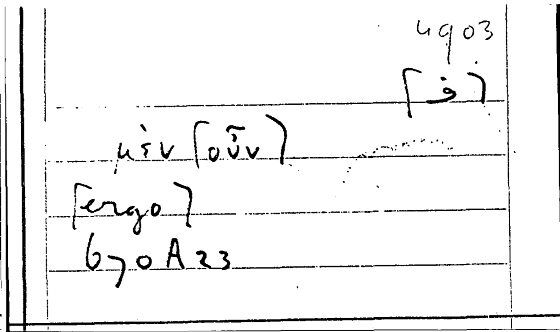 4903
[ف]
μὲν [οὖν]
[ergo]
670A23